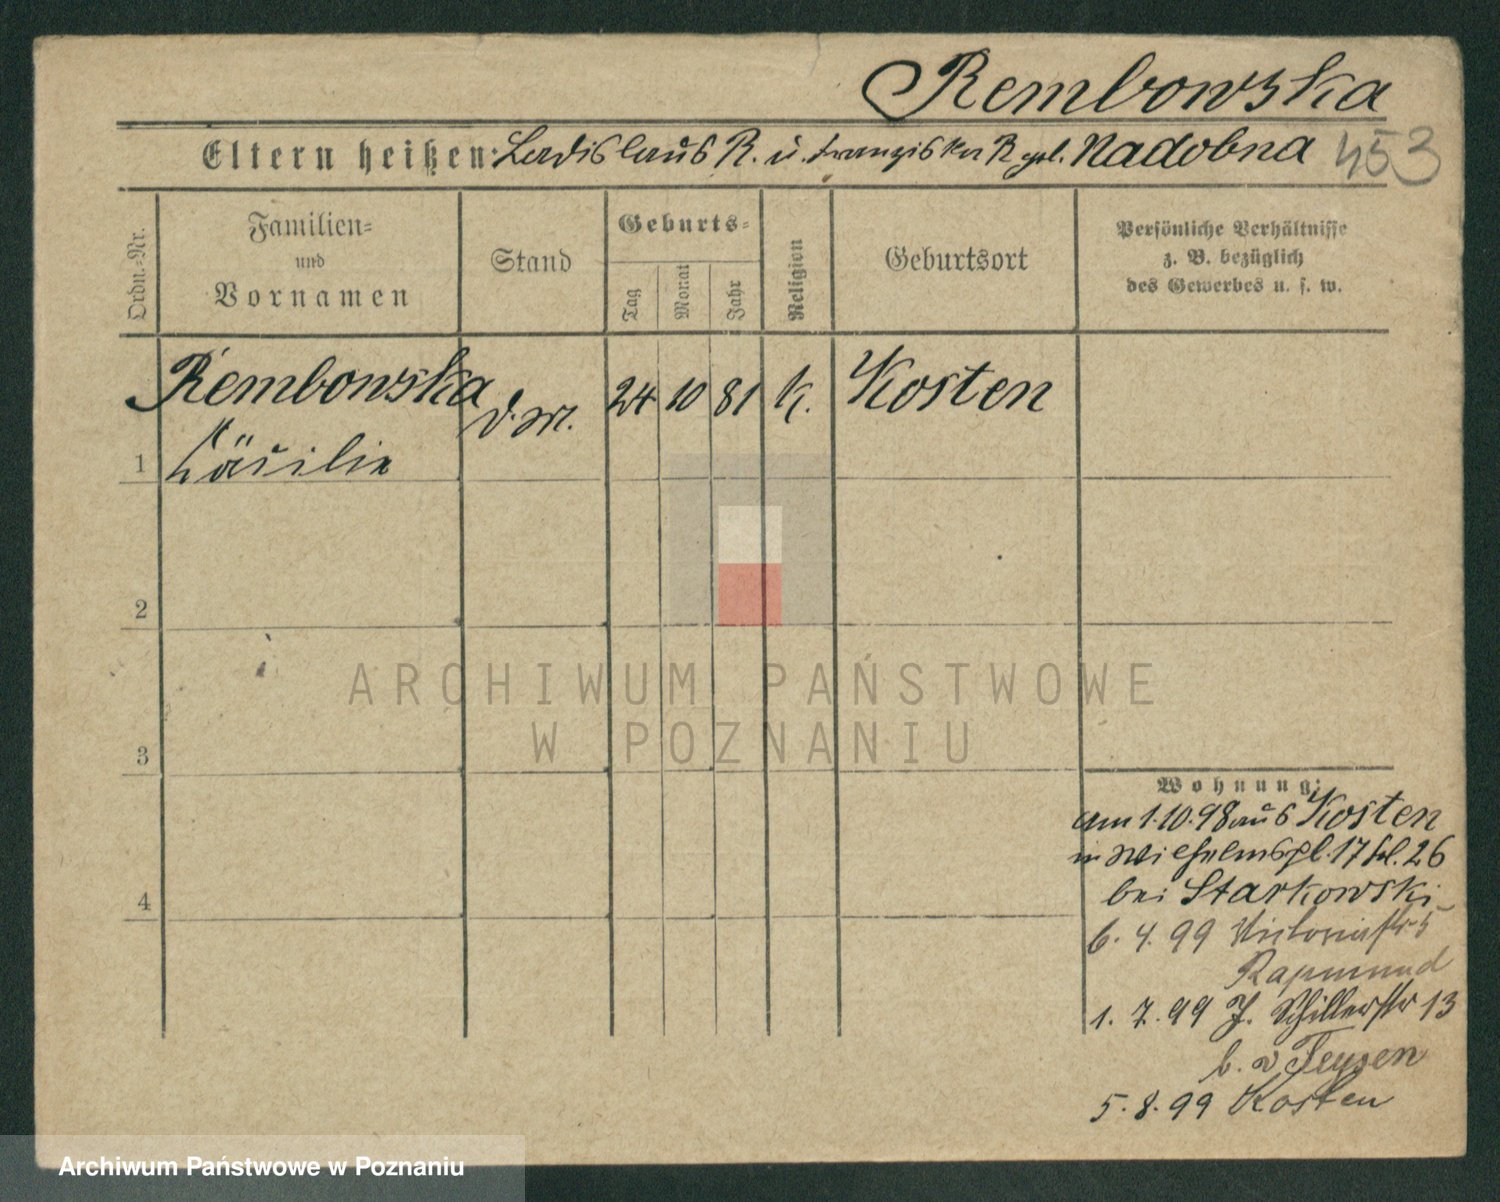 Rembowska
Eltern heißen: Ladislaus R. u. Franziska R. geb. Nadobna 453
Ordn.-Nr.
Familien-
und
Vornamen
Stand
Geburts-
Tag
Monat
Jahr
Religion
Geburtsort
Persönliche Verhältnisse
z. B. bezüglich
des Gewerbes u. s. w.
Rembowska D.M. 24 10 81 k. Kosten
1 Cäcilie
2
3
4
ARCHIWUM PAŃSTWOWE
W POZNANIU
Wohnung:
am 1.10.98 aus Kosten
n Wilhelmspl. 17 26
bei Starkowski
6. 4. 99 Victoriastr. 5
Rapmund
1. 7. 99 J. Schillerstr 13
b. v Teysen
5. 8. 99 Kosten
Archiwum Państwowe w Poznaniu